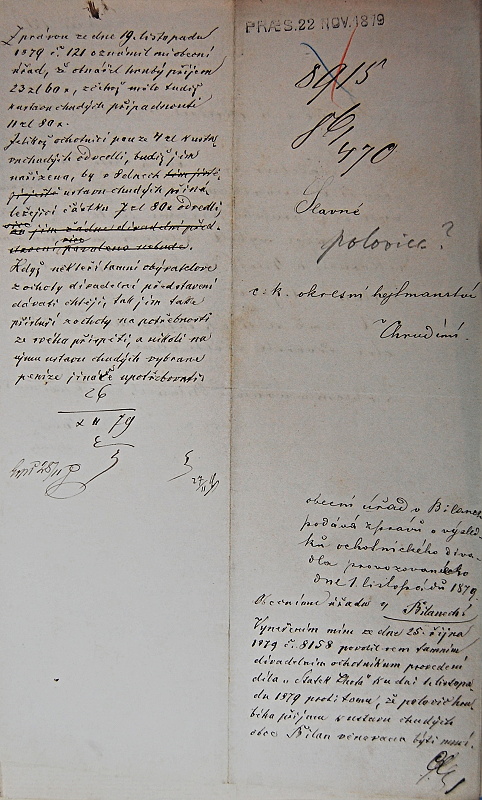 Zprávou ze dne 19. listopadu
1879 č. 121 oznámil mi obecní
úřad, že obnášel hrubý příjem
23 zl 60 x, z čehož mělo tudíž
ústavu chudých připadnouti
11 zl 80 x.
Jelikož ochotníci pouze 4 zl k ústa-
vu chudých odvedli, budiž jim
nařízeno, by v 8 dnech
ústavu chudých přiná-
ležející částku 7 zl 80 x odvedli,
jim žádné divadelní před-
stavení více povoleno nebude.
Když někteří tamní obyvatelové
z ochoty divadelní představení
dávati chtějí, tak jim také
přísluší z ochoty na potřebnosti
ze svého přispěti, a nikoli na
újmu ústavu chudých vybrané
peníze jináče upotřebovati.
26
x 11 79
PRÆS. 22 NOV. 1879
8915
470
Slavné
polovice?
c. k. okresní hejtmanství
v Chrudimi.
obecní úřad v Bílanech
podává zprávu o výsled-
ku ochotnického diva-
dla provozovaného
dne 1. listopadu 1879
Obecnímu úřadu v Bílanech
Vynešením mým ze dne 25. října
1879 č. 8158 povolil jsem tamním
divadelním ochotníkům provedení
díla „ ku dni 1. listopa-
du 1879 proti tomu, že polovic hru-
bého příjmu k ústavu chudých
obce Bílan věnována býti musí.